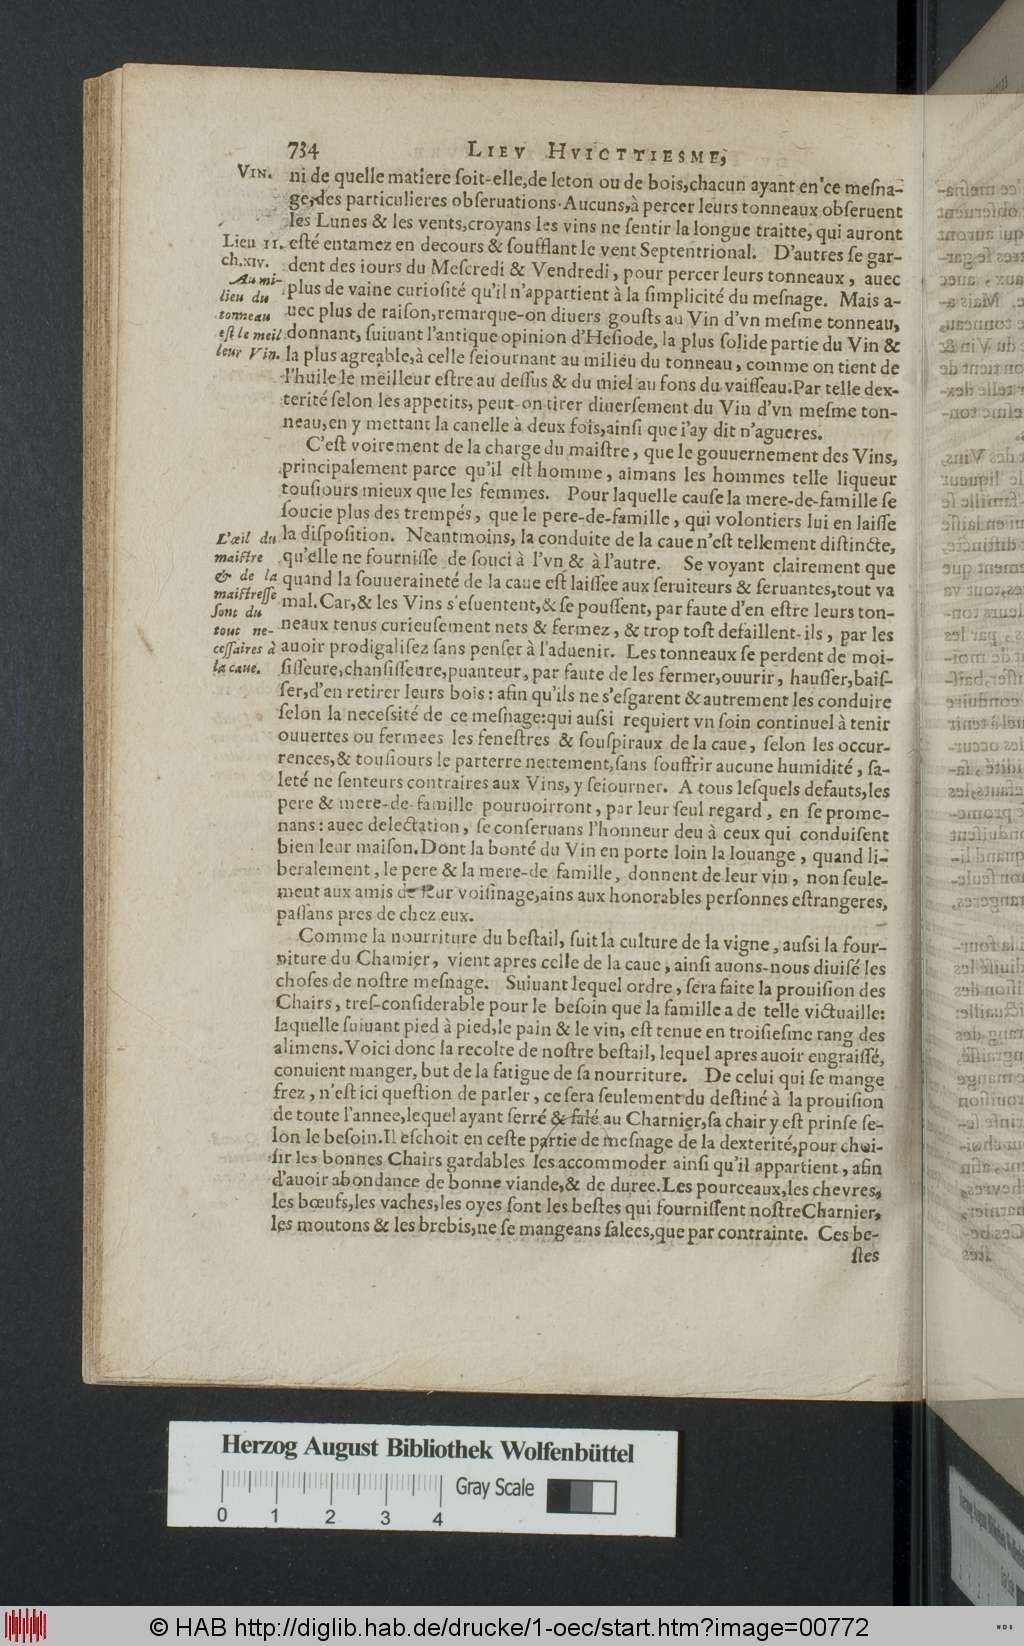 734 LIEV HVICTTIESME,
VIN.
ni de quelle matiere ſoit-elle,de leton ou de bois,chacun ayant en'ce meſna-
ge,des particulieres obſeruations.Aucuns,à percer leurs tonneaux obſeruent
les Lunes & les vents,croyans les vins ne ſentir la longue traitte, qui auront
Lieu 11.
ch.xiv.
eſté entamez en decours & ſoufflant le vent Septentrional. D'autres ſe gar-
dent des iours du Meſcredi & Vendredi, pour percer leurs tonneaux, auec
Au mi-
lieu du
tonneau
eſt le meil
leur Vin.
plus de vaine curioſité qu'il n'appartient à la ſimplicité du meſnage. Mais a-
uec plus de raiſon,remarque-on diuers gouſts au Vin d'vn meſme tonneau,
donnant, ſuiuant l'antique opinion d'Heſiode, la plus ſolide partie du Vin &
la plus agreable,à celle ſeiournant au milieu du tonneau, comme on tient de
l'huile le meilleur eſtre au deſſus & du miel au fons du vaiſſeau.Par telle dex-
terité ſelon les appetits, peut-on tirer diuerſement du Vin d'vn meſme ton-
neau,en y mettant la canelle à deux fois,ainſi que i'ay dit n'agueres.
C'eſt voirement de la charge du maiſtre, que le gouuernement des Vins,
principalement parce qu'il eſt homme, aimans les hommes telle liqueur
touſiours mieux que les femmes. Pour laquelle cauſe la mere-de-famille ſe
ſoucie plus des trempés, que le pere-de-famille, qui volontiers lui en laiſſe
L'œil du
maiſtre
& de la
maiſtreſſe
ſont du
tout ne-
ceſſaires à
la caue.
la diſpoſition. Neantmoins, la conduite de la caue n'eſt tellement diſtincte,
qu'elle ne fourniſſe de ſouci à l'vn & à l'autre. Se voyant clairement que
quand la ſouueraineté de la caue eſt laiſſee aux ſeruiteurs & ſeruantes,tout va
mal.Car,& les Vins s'eſuentent,& ſe pouſſent, par faute d'en eſtre leurs ton-
neaux tenus curieuſement nets & fermez, & trop toſt defaillent-ils, par les
auoir prodigaliſez ſans penſer à l'aduenir. Les tonneaux ſe perdent de moi-
ſiſſeure,chanſiſſeure,puanteur, par faute de les fermer,ouurir, hauſſer,baiſ-
ſer,d'en retirer leurs bois: afin qu'ils ne s'eſgarent & autrement les conduire
ſelon la neceſsité de ce meſnage:qui auſsi requiert vn ſoin continuel à tenir
ouuertes ou fermees les feneſtres & ſouſpiraux de la caue, ſelon les occur-
rences,& touſiours le parterre nettement,ſans ſouffrir aucune humidité, ſa-
leté ne ſenteurs contraires aux Vins, y ſeiourner. A tous leſquels defauts,les
pere & mere-de-famille pouruoirront, par leur ſeul regard, en ſe prome-
nans: auec delectation, ſe conſeruans l'honneur deu à ceux qui conduiſent
bien leur maiſon.Dont la bonté du Vin en porte loin la louange, quand li-
beralement, le pere & la mere-de famille, donnent de leur vin, non ſeule-
ment aux amis de leur voiſinage,ains aux honorables perſonnes eſtrangeres,
paſſans pres de chez eux.
Comme la nourriture du beſtail, ſuit la culture de la vigne, auſsi la four-
niture du Charnier, vient apres celle de la caue, ainſi auons-nous diuiſé les
choſes de noſtre meſnage. Suiuant lequel ordre, ſera faite la prouiſion des
Chairs, treſ-conſiderable pour le beſoin que la famille a de telle victuaille:
laquelle ſuiuant pied à pied,le pain & le vin, eſt tenue en troiſieſme rang des
alimens.Voici donc la recolte de noſtre beſtail, lequel apres auoir engraiſſé,
conuient manger, but de la fatigue de ſa nourriture. De celui qui ſe mange
frez, n'eſt ici queſtion de parler, ce ſera ſeulement du deſtiné à la prouiſion
de toute l'annee,lequel ayant ſerré & ſalé au Charnier,ſa chair y eſt prinſe ſe-
lon le beſoin.Il eſchoit en ceſte partie de meſnage de la dexterité,pour choi-
ſir les bonnes Chairs gardables les accommoder ainſi qu'il appartient, afin
d'auoir abondance de bonne viande,& de duree.Les pourceaux,les chevres,
les bœufs,les vaches,les oyes ſont les beſtes qui fourniſſent noſtre Charnier,
les moutons & les brebis,ne ſe mangeans ſalees,que par contrainte. Ces be-
ſtes
Herzog August Bibliothek Wolfenbüttel
Gray Scale
0 1 2 3 4
© HAB http://diglib.hab.de/drucke/1-oec/start.htm?image=00772